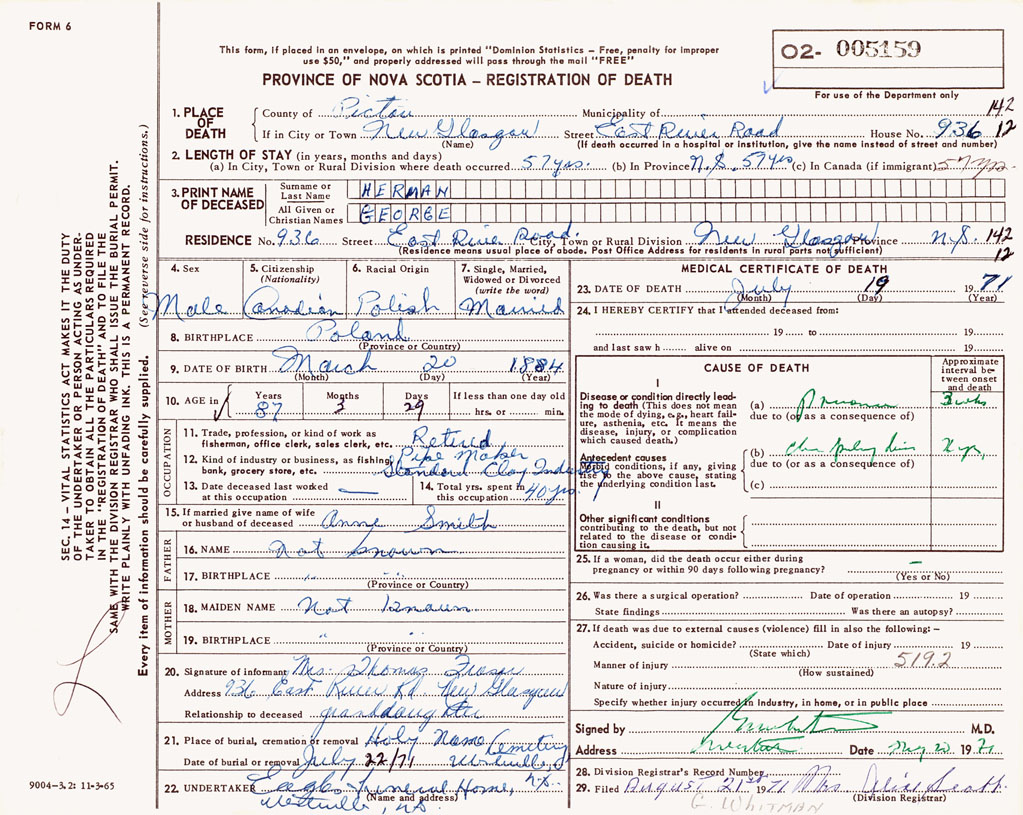 FORM 6
This form, if placed in an envelope, on which is printed "Dominion Statistics – Free, penalty for improper
use $50," and properly addressed will pass through the mail "FREE"
02- 005159
For use of the Department only
PROVINCE OF NOVA SCOTIA – REGISTRATION OF DEATH
1. PLACE OF DEATH County of Pictou Municipality of 142
If in City or Town New Glasgow Street East River Road House No. 936 12
(Name) (If death occurred in a hospital or institution, give the name instead of street and number)
2. LENGTH OF STAY (in years, months and days)
(a) In City, Town or Rural Division where death occurred 57 yrs. (b) In Province N.S. 57 yrs (c) In Canada (if immigrant) 57 yrs
3. PRINT NAME OF DECEASED
Surname or Last Name HERMAN
All Given or Christian Names GEORGE
RESIDENCE No. 936 Street East River Road. City, Town or Rural Division New Glasgow Province N.S. 142
(Residence means usual place of abode. Post Office Address for residents in rural parts not sufficient) 12
4. Sex 5. Citizenship (Nationality) 6. Racial Origin 7. Single, Married, Widowed or Divorced (write the word)
Male Canadian Polish Married
8. BIRTHPLACE Poland
(Province or Country)
9. DATE OF BIRTH March 20 1884
(Month) (Day) (Year)
10. AGE in Years Months Days If less than one day old
87 3 29 hrs. or min.
OCCUPATION
11. Trade, profession, or kind of work as fisherman, office clerk, sales clerk, etc. Retired
12. Kind of industry or business, as fishing, bank, grocery store, etc. Pipe Maker
Standard Clay Industry
13. Date deceased last worked at this occupation
14. Total yrs. spent in this occupation 40 yrs.
15. If married give name of wife or husband of deceased Anne Smith
FATHER
16. NAME Not known
17. BIRTHPLACE " "
(Province or Country)
MOTHER
18. MAIDEN NAME Not Known
19. BIRTHPLACE " "
(Province or Country)
20. Signature of informant Mrs. Thomas Fraser
Address 936 East River Rd New Glasgow
Relationship to deceased granddaughter
21. Place of burial, cremation or removal Holy Name Cemetery
Date of burial or removal July 22/71 Westville, NS
22. UNDERTAKER Eagles Funeral Home,
(Name and address)
Westville, NS.
MEDICAL CERTIFICATE OF DEATH
23. DATE OF DEATH July 19 1971
(Month) (Day) (Year)
24. I HEREBY CERTIFY that I attended deceased from:
19 to 19
and last saw h alive on 19
CAUSE OF DEATH
Approximate interval between onset and death
I
Disease or condition directly leading to death (This does not mean the mode of dying, e.g., heart failure, asthenia, etc. It means the disease, injury, or complication which caused death.)
(a) 3 wks
due to (or as a consequence of)
Antecedent causes
Morbid conditions, if any, giving rise to the above cause, stating the underlying condition last.
(b)
due to (or as a consequence of)
(c)
II
Other significant conditions
contributing to the death, but not related to the disease or condition causing it.
25. If a woman, did the death occur either during
pregnancy or within 90 days following pregnancy? –
(Yes or No)
26. Was there a surgical operation? Date of operation 19
State findings Was there an autopsy?
27. If death was due to external causes (violence) fill in also the following: –
Accident, suicide or homicide? Date of injury 19
(State which)
Manner of injury 519.2
(How sustained)
Nature of injury
Specify whether injury occurred in industry, in home, or in public place
Signed by M.D.
Address Date 1971
28. Division Registrar's Record Number
29. Filed August 21st 1971 Mrs Alice Scott
(Division Registrar)
G. WHITMAN
9004-3.2: 11-3-65
SEC. 14 – VITAL STATISTICS ACT MAKES IT THE DUTY
OF THE UNDERTAKER OR PERSON ACTING AS UNDER-
TAKER TO OBTAIN ALL THE PARTICULARS REQUIRED
IN THE "REGISTRATION OF DEATH" AND TO FILE THE
SAME WITH THE DIVISION REGISTRAR WHO SHALL ISSUE THE BURIAL PERMIT.
WRITE PLAINLY WITH UNFADING INK. THIS IS A PERMANENT RECORD.
Every item of information should be carefully supplied. (See reverse side for instructions.)